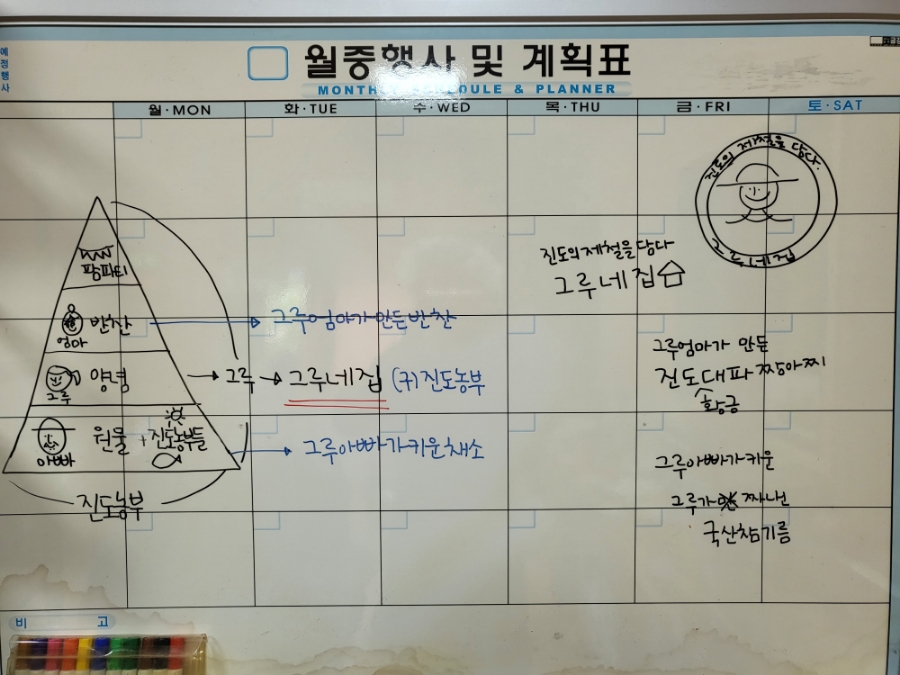 예정행사
월중행사 및 계획표
MONTHLY SCHEDULE & PLANNER
월·MON
화·TUE
수·WED
목·THU
금·FRI
토·SAT
진도의 제철을 담다.
그루네집
진도의 제철을 담다
그루네집
팜파티
반찬
엄마
그루엄마가 만든 반찬
양념
그루
그루
그루네집
(구)진도농부
원물
+진도농부들
아빠
그루아빠가 키운 채소
진도농부
그루엄마가 만든
진도대파 짜아찌
황금
그루아빠가 키운
그루가 짜낸
국산참기름
비 고